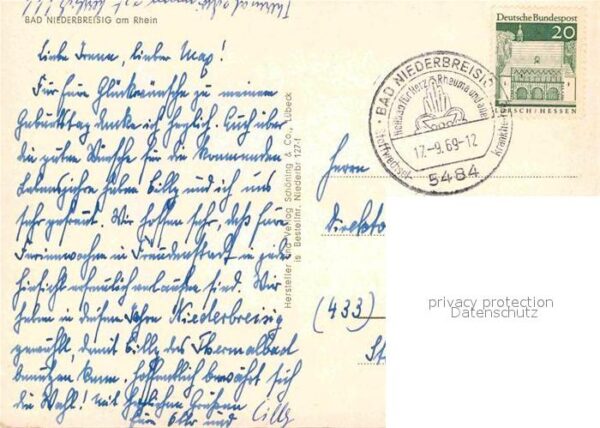 BAD NIEDERBREISIG am Rhein
Liebe Irene, lieber Max!
Für Eure Glückwünsche zu meinem
Geburtstag danke ich herzlich. Auch über
die guten Wünsche für die kommenden
Lebensjahre haben Cilly und ich uns
sehr gefreut. Wir hoffen sehr, daß Eure
Ferienwochen in Freudenstadt in jeder
Hinsicht erfreulich verlaufen sind. Wir
haben in diesem Jahre Niederbreisig
gewählt, damit Cilly das Thermalbad
benutzen kann. Hoffentlich bewährt sich
die Wahl! Mit herzlichen Grüßen
Eure und Cilly
Hersteller und Verlag Schöning & Co., Lübeck
Bestellnr. Niederbr 127-1
BAD NIEDERBREISIG
Heilbad für Herz Rheuma und aller
Stoffwechsel
17.-9.69-12
5484
Deutsche Bundespost
20
LORSCH/HESSEN
Herrn
Direkto
(433)
St
privacy protection
Datenschutz